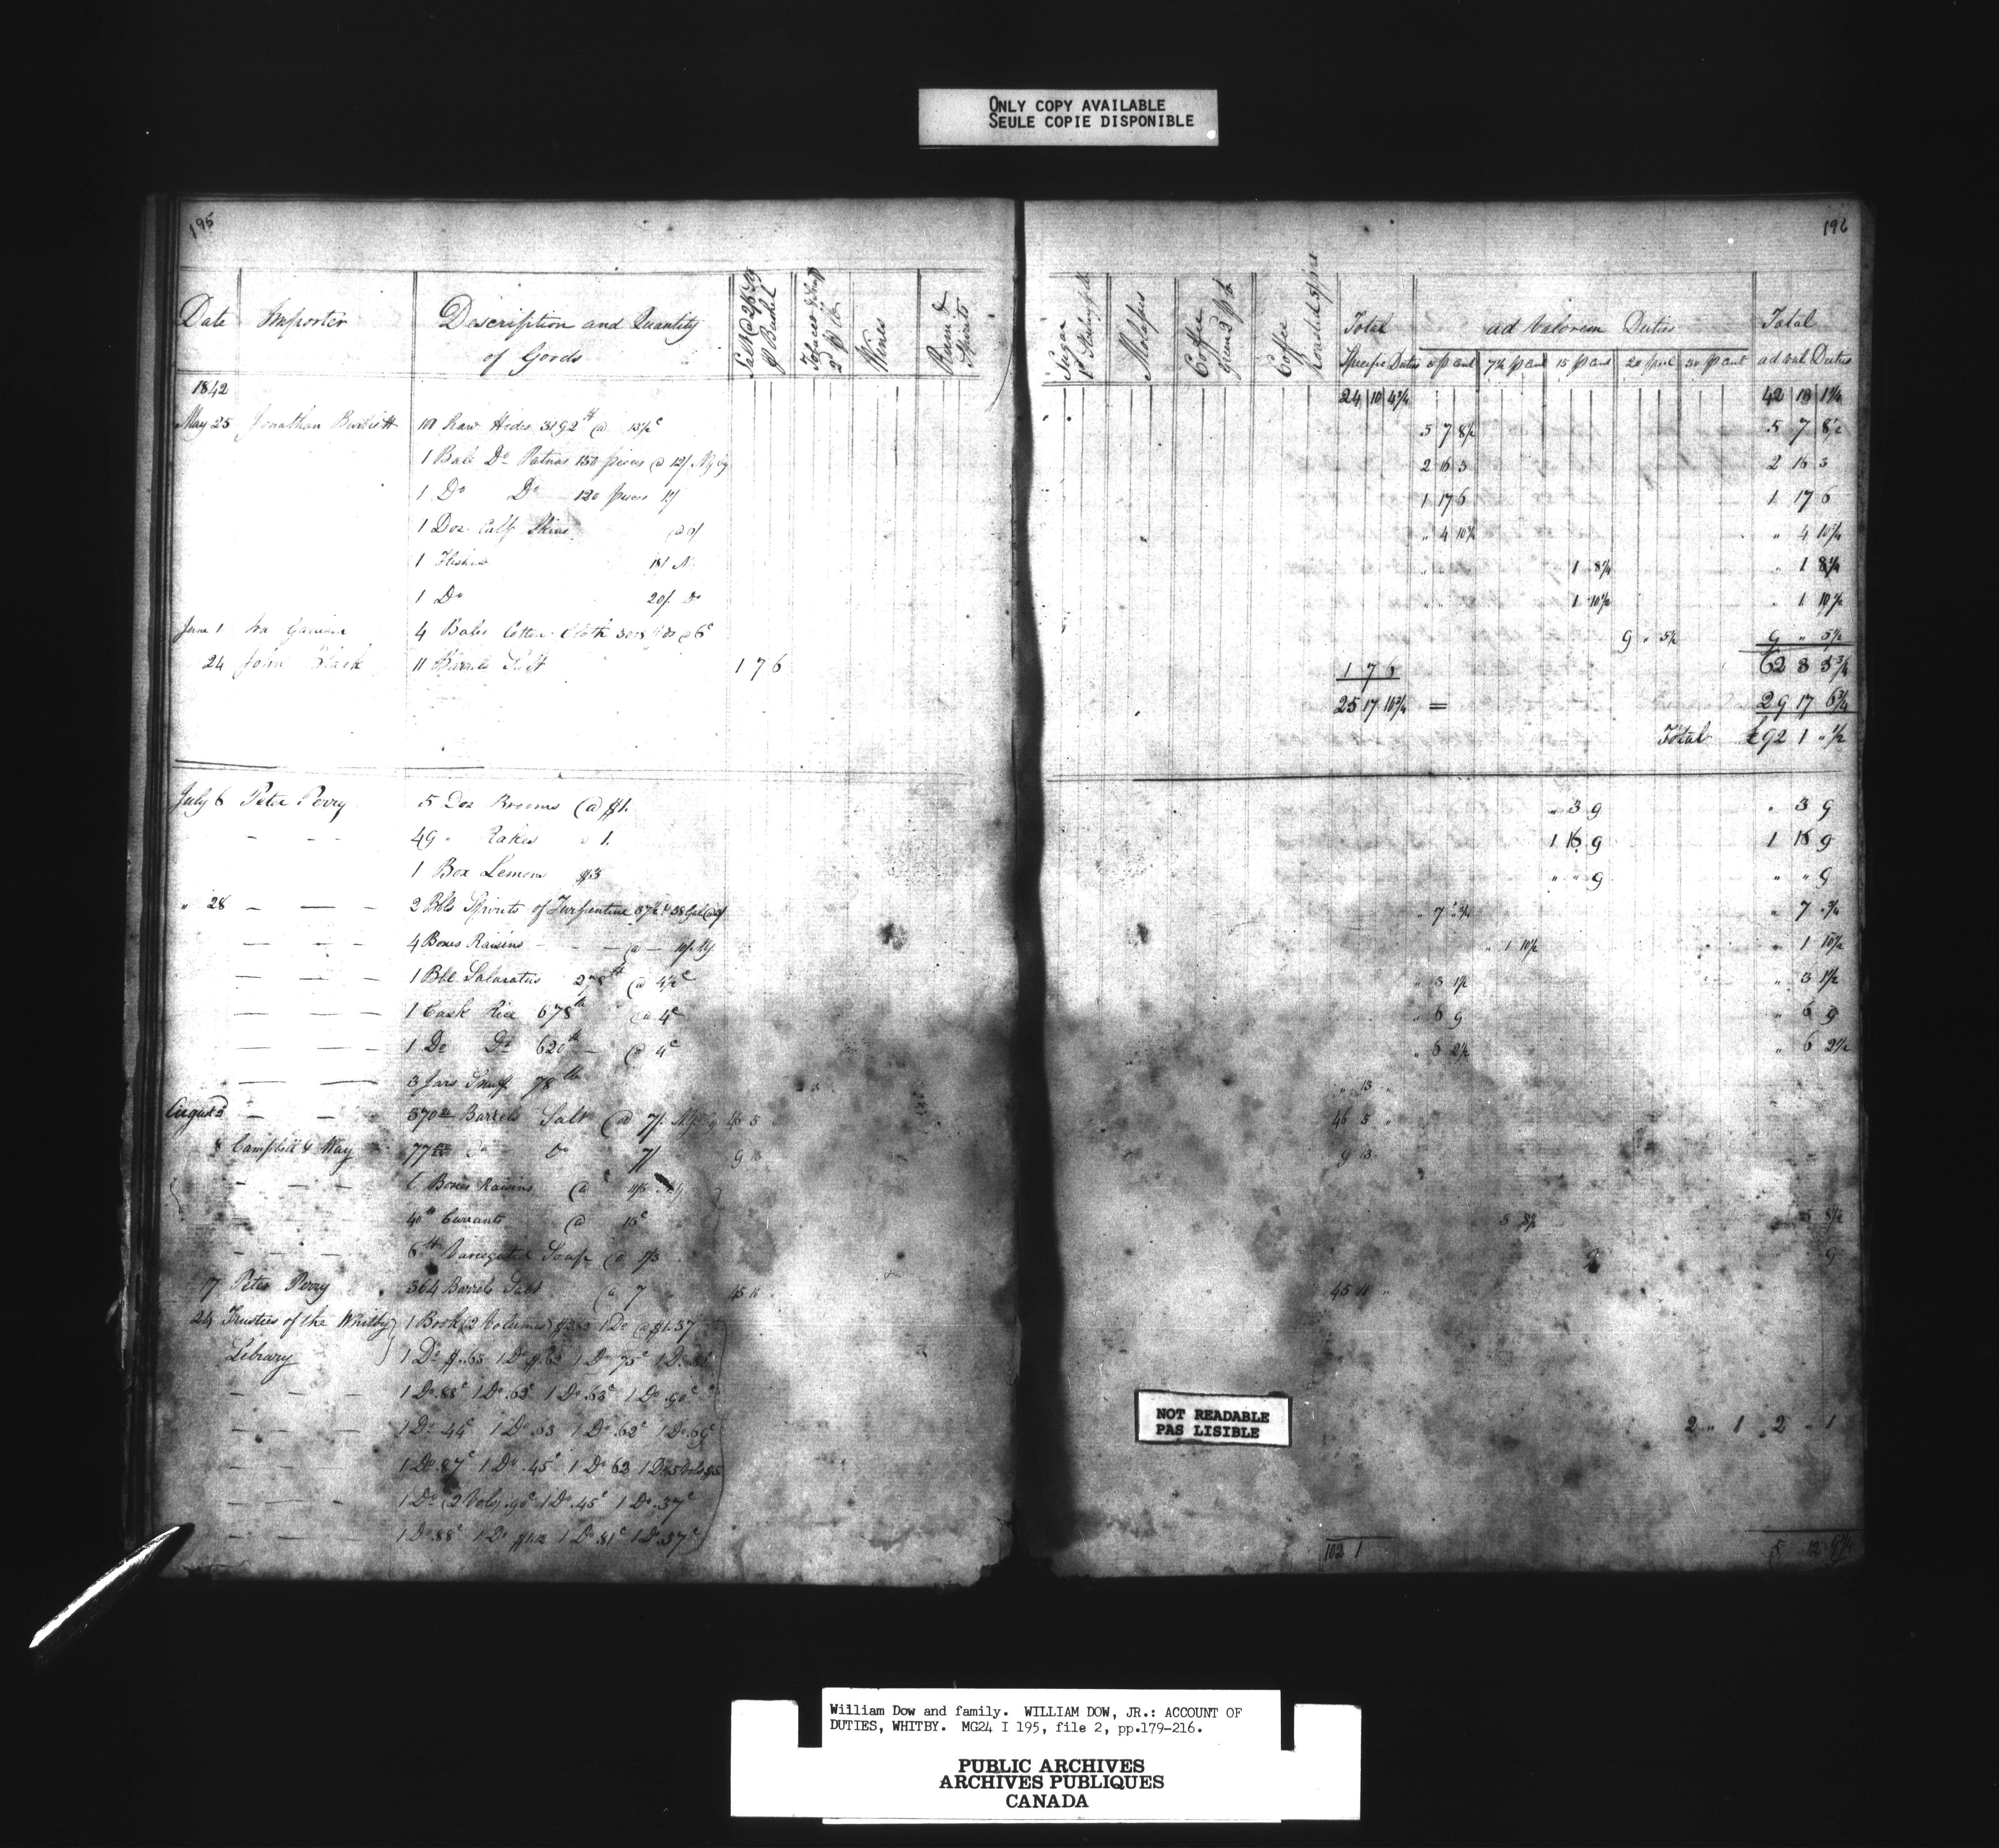 ONLY COPY AVAILABLE
SEULE COPIE DISPONIBLE
195
196
Date Importer Description and Quantity of Goods Salt @ Bushel Tobacco & Snuff Wines Rum & Spirits Sugar Molasses Coffee Green Coffee Roasted Total Specific Duties ad Valorem Duties 5 p Cent 7½ p Cent 15 p Cent 20 p Cent 30 p Cent Total ad val Duties
1842 24 10 4¾ 42 18 1¼
May 25 Jonathan 101 Raw Hides 3192 lb @ 13½ c 5 7 8½ 5 7 8½
1 Bale Do Patnas 150 pieces @ 12/ N Y Cy 2 16 3 2 16 3
1 Do Do 120 pieces 1 17 6 1 17 6
1 Doz Calf Skins " 4 10½ " 4 10½
1 18/ 1 8¼ " 1 8¼
1 Do 20/ Do 1 10½ " 1 10½
June 1 Ira 4 Bales Cotton Cloth @ 6c 9 " 5½ 9 " 5½
24 John Black 11 Barrels Salt 1 7 6 1 7 6 62 8 5¾
25 17 10¾ = 29 17 6¾
Total £92 1 " ½
July 6 Peter Perry 5 Doz Brooms @ $1. " 3 9 " 3 9
- - 49 " Rakes " 1. 1 16 9 1 16 9
1 Box Lemons $3 " " 9 " " 9
" 28 - - - 2 Bbls Spirits of Turpentine 37½ & 38 Gal " 7 " ¾ " 7 " ¾
- - - 4 Boxes Raisins - - @ - " 1 10½ " 1 10½
- - - 1 Bbl Salaratus 278 lb @ 4½ c " 3 1½ " 3 1½
- - - 1 Cask Rice 678 lb @ 4c " 6 9 " 6 9
- - - 1 Do Do 620 lb - @ 4c " 6 2½ " 6 2½
- - 3 Jars Snuff 78 lb 13 " 13 "
August 2 - - 370 Barrels Salt @ 7/ 46 5 46 5 "
8 Campbell & Way 77 Do 7/ 9 13 9 13
- - - 6 Boxes Raisins @
- - - 40 lb Currants @ 15c 5 8½ 5 8½
- - - 6 lb Variegated Soap @ 1/3 9 9
17 Peter Perry 364 Barrels Salt @ 7 45 10 45 10 "
24 Trustees of the Whitby 1 Book (2 Volumes) 1 Do @ $1.37
Library 1 Do $.63 1 Do $.63 1 Do 75c 1 Do
- - - 1 Do .88c 1 Do .63c 1 Do .63c 1 Do .90c
- - - 1 Do 44c 1 Do .63 1 Do .62c 1 Do .69c 2 " 1 2 " 1
- - - 1 Do .87c 1 Do .45c 1 Do 63
- - - 1 Do (2 Vols) .90c 1 Do .45c 1 Do .37c
- - - 1 Do .88c 1 Do $1.12 1 Do .81c 1 Do .37c
102 1 5 12 9¼
NOT READABLE
PAS LISIBLE
William Dow and family. WILLIAM DOW, JR.: ACCOUNT OF
DUTIES, WHITBY. MG24 I 195, file 2, pp.179-216.
PUBLIC ARCHIVES
ARCHIVES PUBLIQUES
CANADA